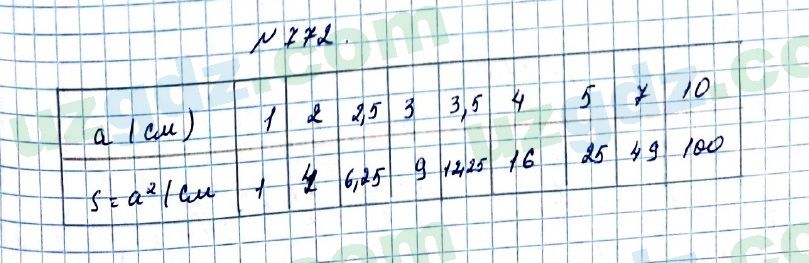 № 772.
a (см) 1 2 2,5 3 3,5 4 5 7 10
S = a² (см 1 4 6,25 9 12,25 16 25 49 100
uzgdz.com
uzgdz.com